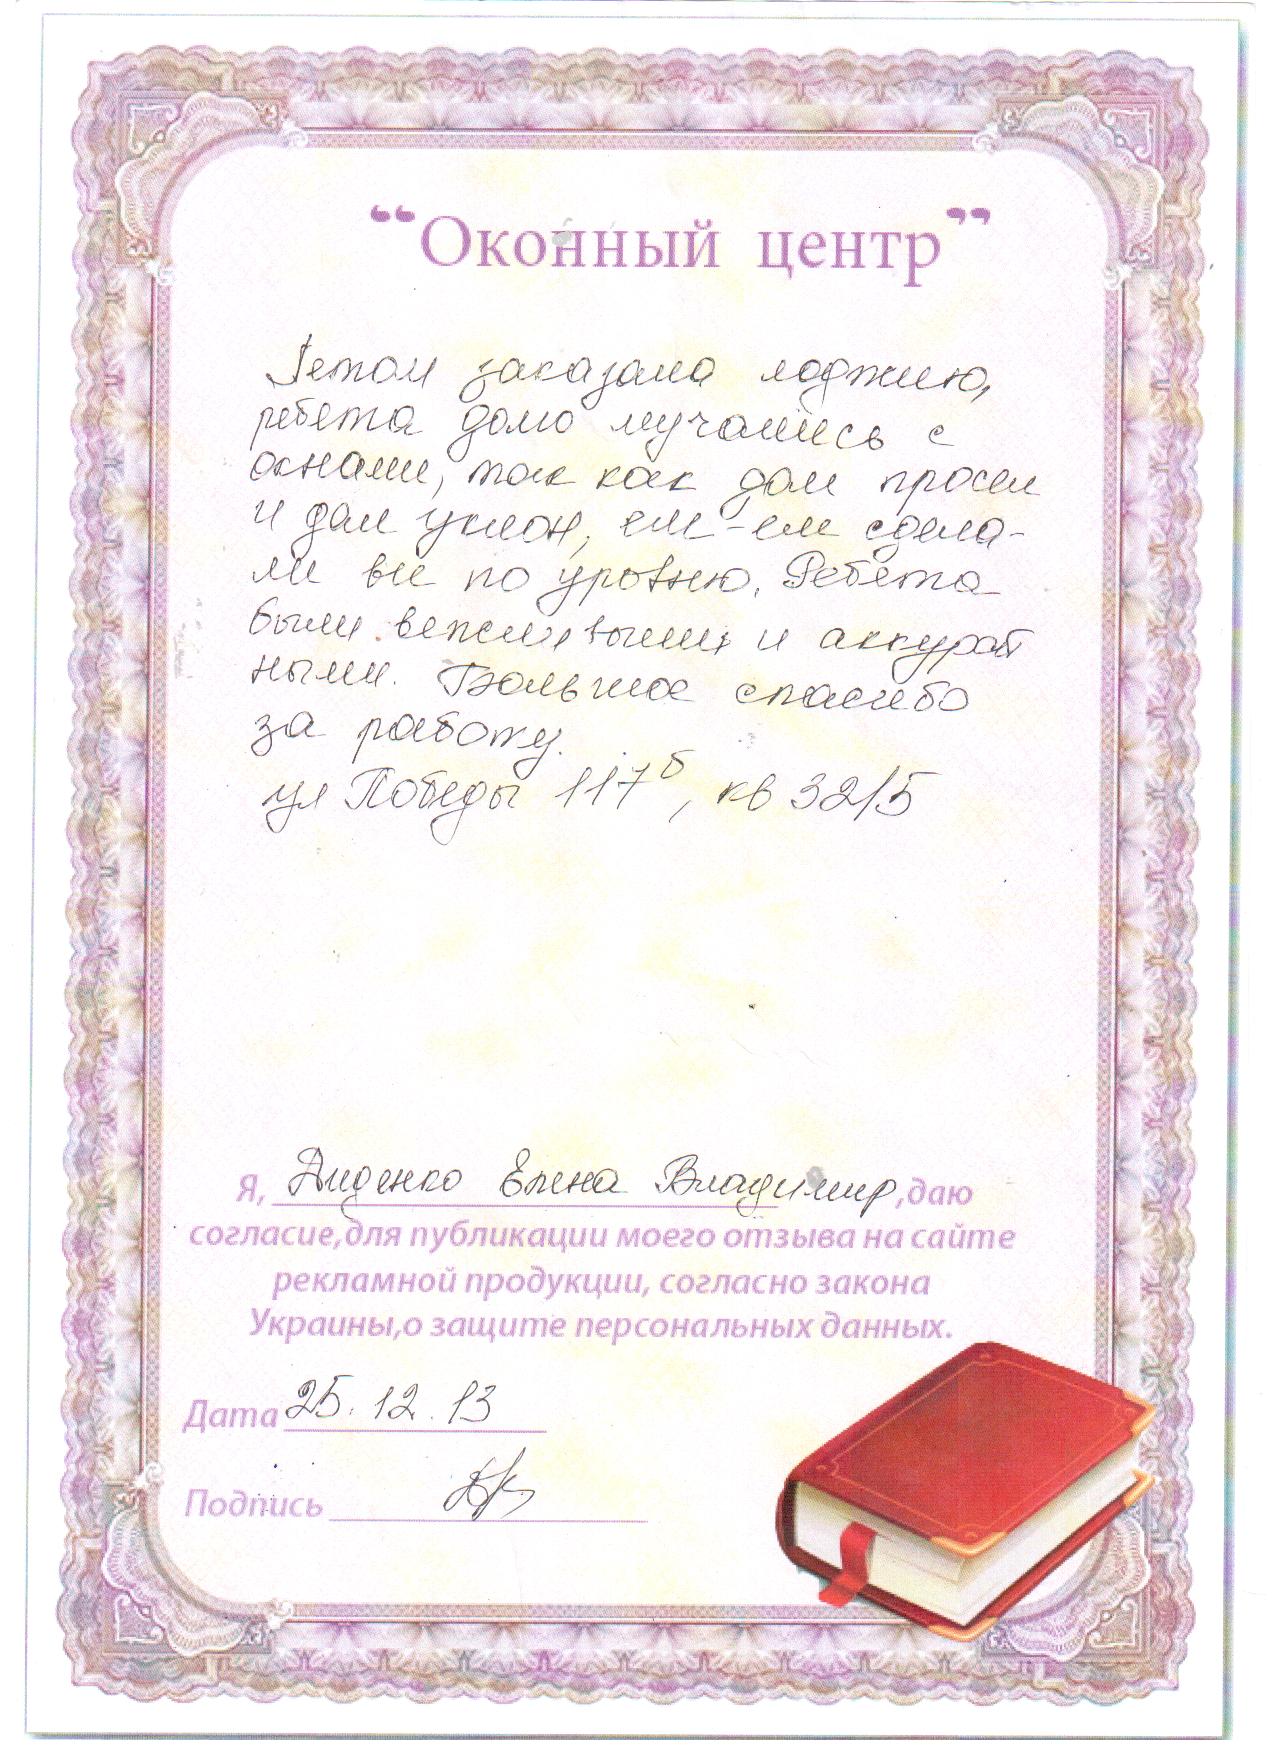 “Оконный центр”
Летом заказала лоджию,
ребята долго мучались с
окнами, так как дом просел
и дал уклон, еле-еле сдела-
ли все по уровню. Ребята
были вежливыми и аккурат
ными. Большое спасибо
за работу.
ул Победы 117б, кв 32/5
Я, Диденко Елена Владимир, даю
согласие,для публикации моего отзыва на сайте
рекламной продукции, согласно закона
Украины,о защите персональных данных.
Дата 25.12.13
Подпись